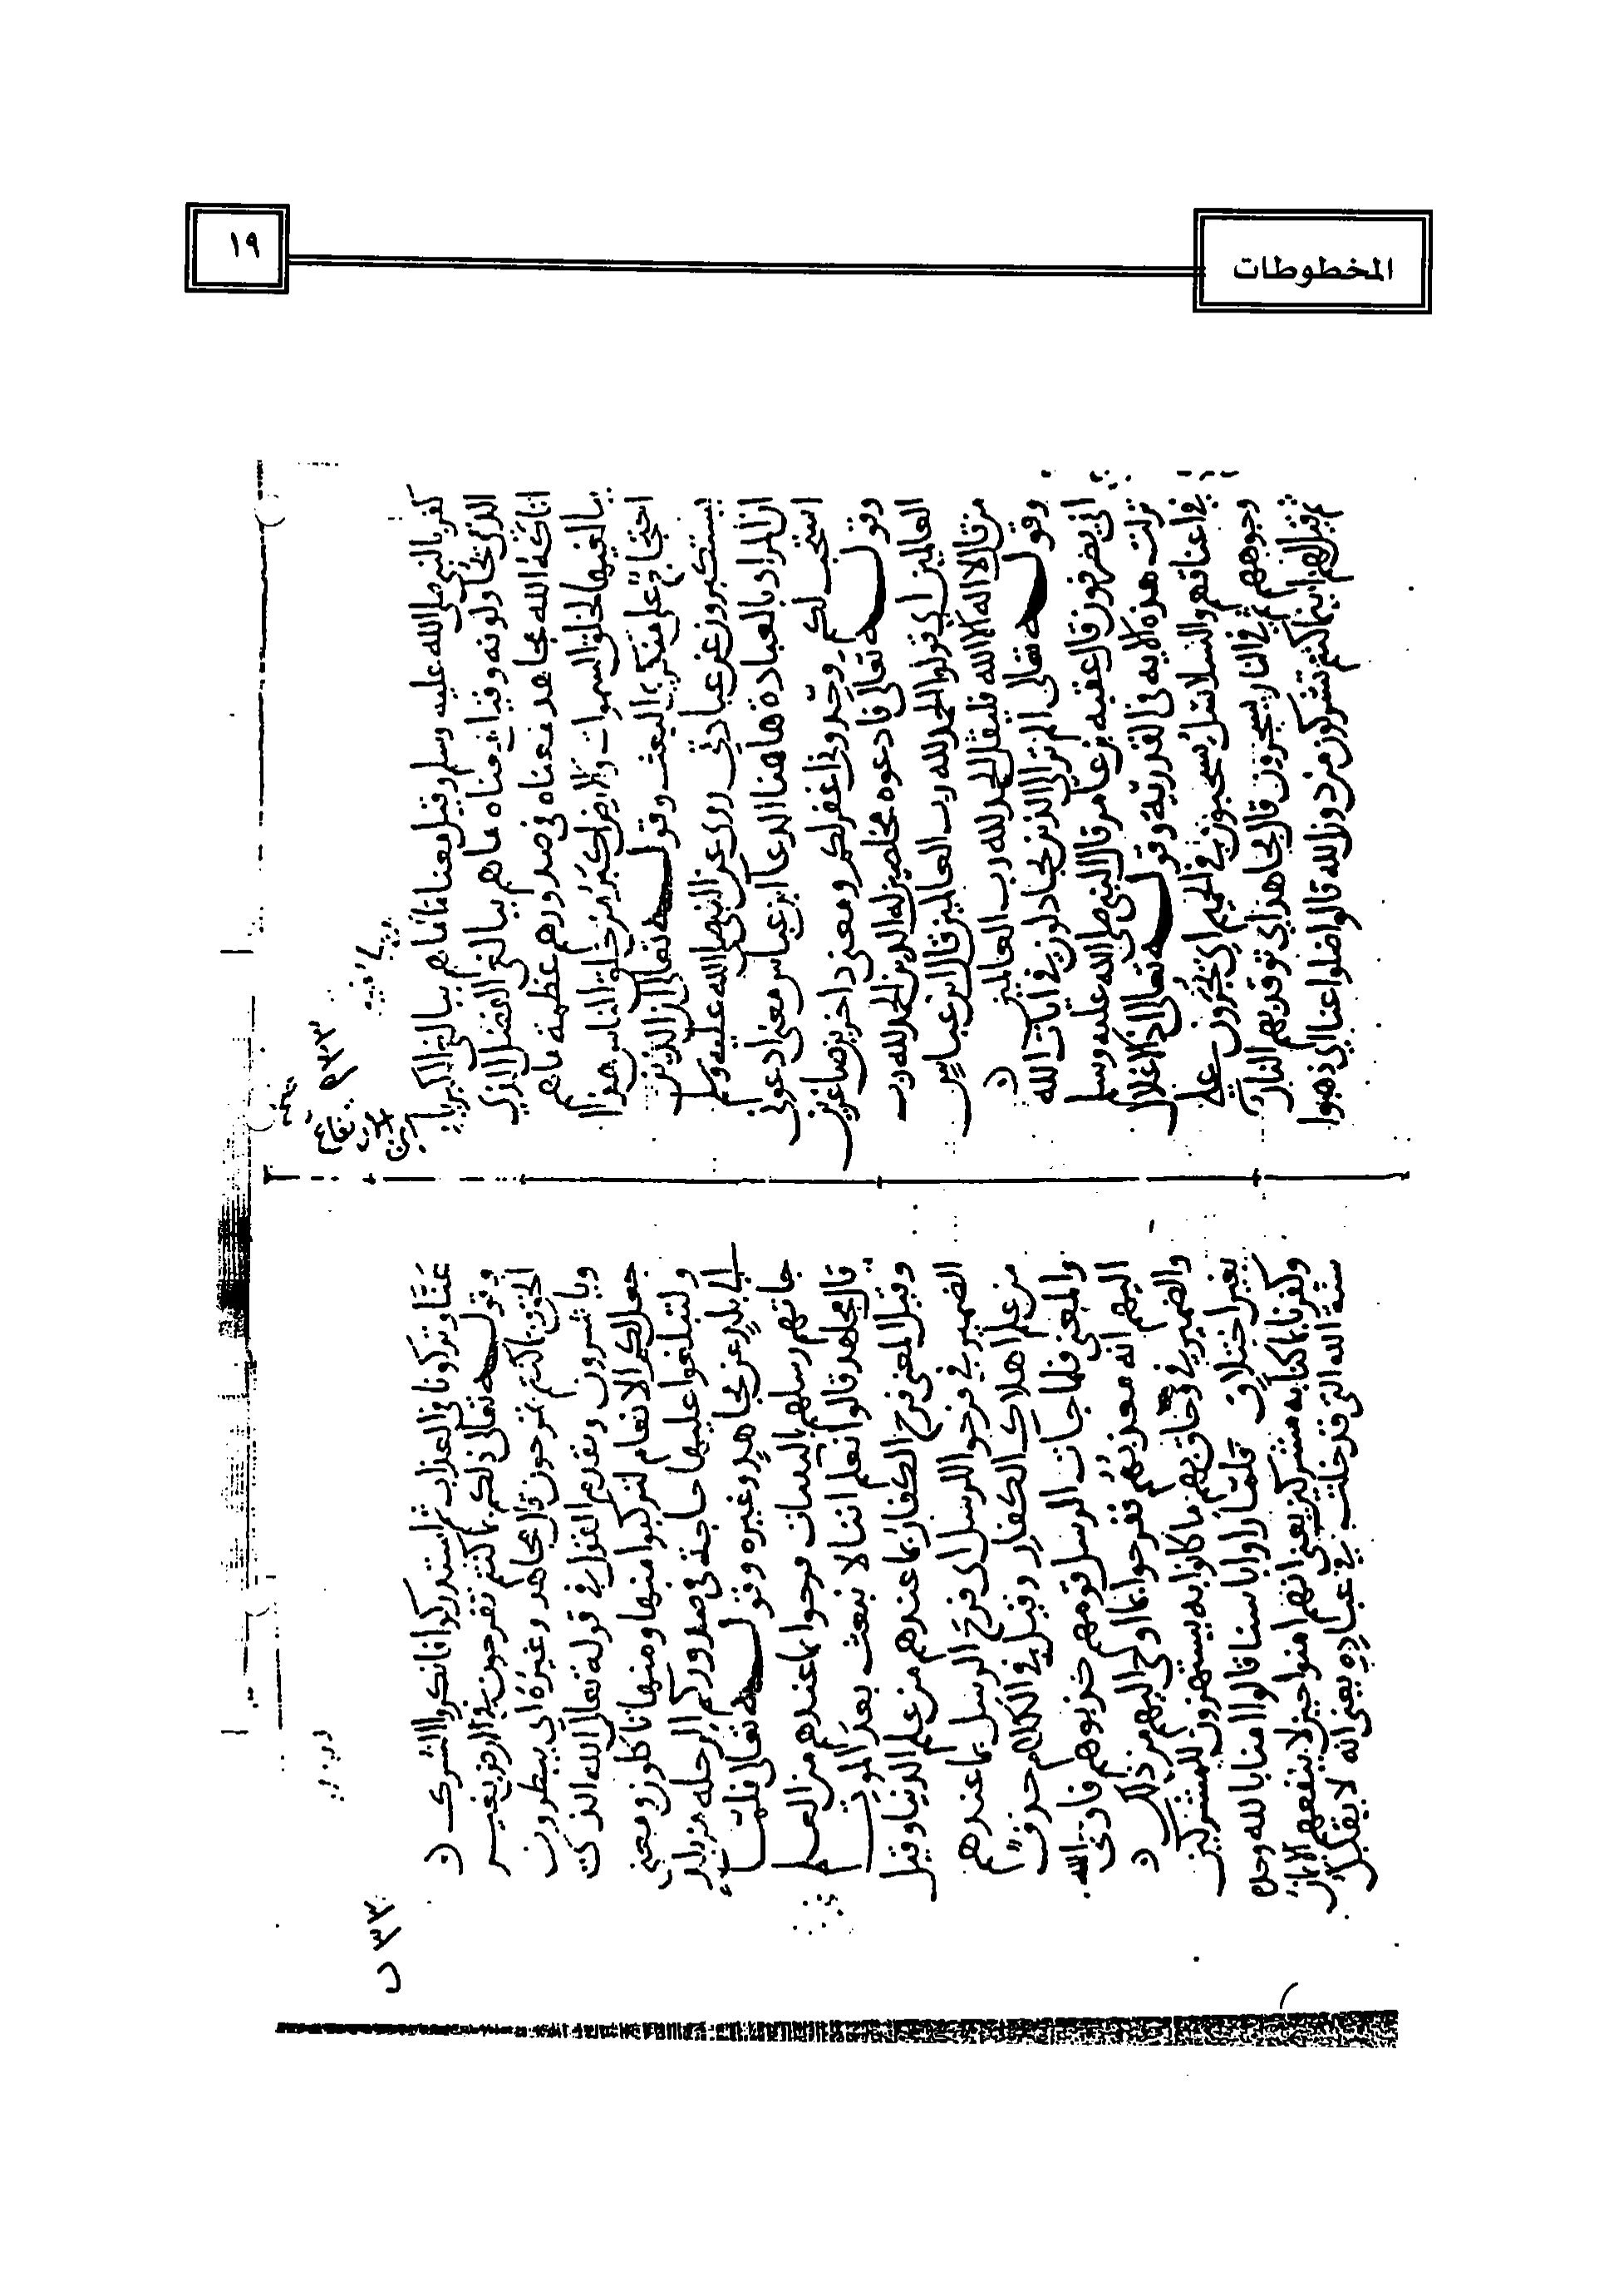 المخطوطات
١٩
كفر بالنبي صلى الله عليه وسلم وقيل معناه ما هم ببالغي الكبريا
الذي يحاولونه وقيل معناه ما هم ببالغي الفضل الذي
اتاكه الله مجاهد معناه في صدورهم عظمة ما هم
ببالغيها لخلق السموات والارض اكبر من خلق الناس هذا
احتجاج على منكري البعث وقوله تعالى ان الذين
يستكبرون عن عبادتي روى عن النبي صلى الله عليه وسلم
ان المراد بالعبادة هاهنا الدعا ابن عباس معنى ادعوني
استجب لكم وحدوني اغفر لكم ومعنى داخرين صاغرين
وقوله تعالى فادعوه مخلصين له الدين الحمد لله رب
العالمين اي قولوا الحمد لله رب العالمين قال ابن عباس
من قال لا اله الا الله فليقل الحمد لله رب العالمين
وقوله تعالى الم تر الى الذين يجادلون في ايات الله
انى يصرفون قال عقبه بن عامر قال النبي صلى الله عليه وسلم
نزلت هذه الايه في القدرية وقوله تعالى اذ الاغلال
في اعناقهم والسلاسل يسحبون في الحميم اي يجرون على
وجوههم ثم في النار يسجرون قال مجاهد اي توقد بهم النار
ثم قيل لهم اين ما كنتم تشركون من دون الله قالوا ضلوا عنا اي ذهبوا
٣٣ ب
عنا وتركونا في العذاب ثم استدركوا فانكروا الشرك
وقوله تعالى ذلكم بما كنتم تفرحون في الارض بغير
الحق وبما كنتم تمرحون قال مجاهد وغيره اي يبطرون
وياشرون وتقدم القول في قوله تعالى الله الذي
جعل لكم الانعام لتركبوا منها ومنها تاكلون ومعنى
ولتبلغوا عليها حاجة في صدوركم الرحله من بلد
الى بلد عن مجاهد وغيره وقوله تعالى فلما
جاتهم رسلهم بالبينات فرحوا بما عندهم من العلم
قال مجاهد قالوا نحن اعلم اننا لا نبعث بعد الموت
وقيل المعنى فرح الكفار بما عندهم من علم الدنيا وقيل
الضمير في فرحوا للرسل اي فرح الرسل بما عندهم
من علم اهلاك الكفار وقيل في الكلام حذف
والمعنى فلما جات الرسل قومهم كذبوهم فاوحى الله
اليهم انه معذبهم ففرحوا بما اوحى اليهم من ذلك
والضمير في وحاق بهم ما كانوا به يستهزون للمشركين
بغير اختلاف فلما راوا باسنا قالوا امنا بالله وحده
وكفرنا بما كنا به مشركين يعني انهم امنوا حين لا ينفعهم الايمان
سنة الله التي قد خلت في عباده يعني انه لا يقبل